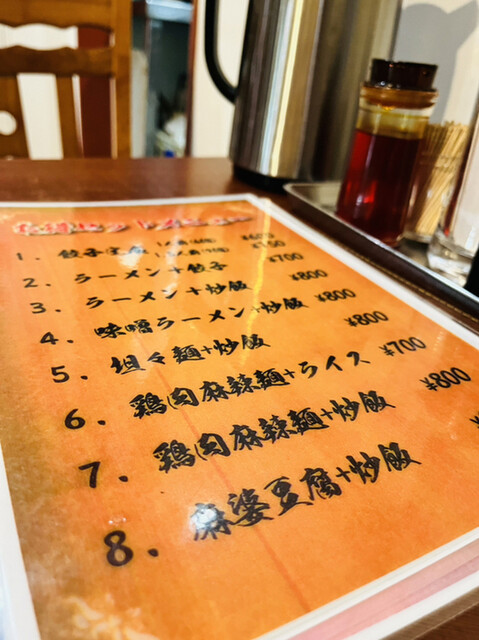 1. 餃子定食 ¥750
2. ラーメン+餃子 ¥700
3. ラーメン+炒飯 ¥800
4. 味噌ラーメン+炒飯 ¥800
5. 坦々麺+炒飯 ¥800
6. 鶏肉麻辣麺+ライス ¥700
7. 鶏肉麻辣麺+炒飯 ¥800
8. 麻婆豆腐+炒飯